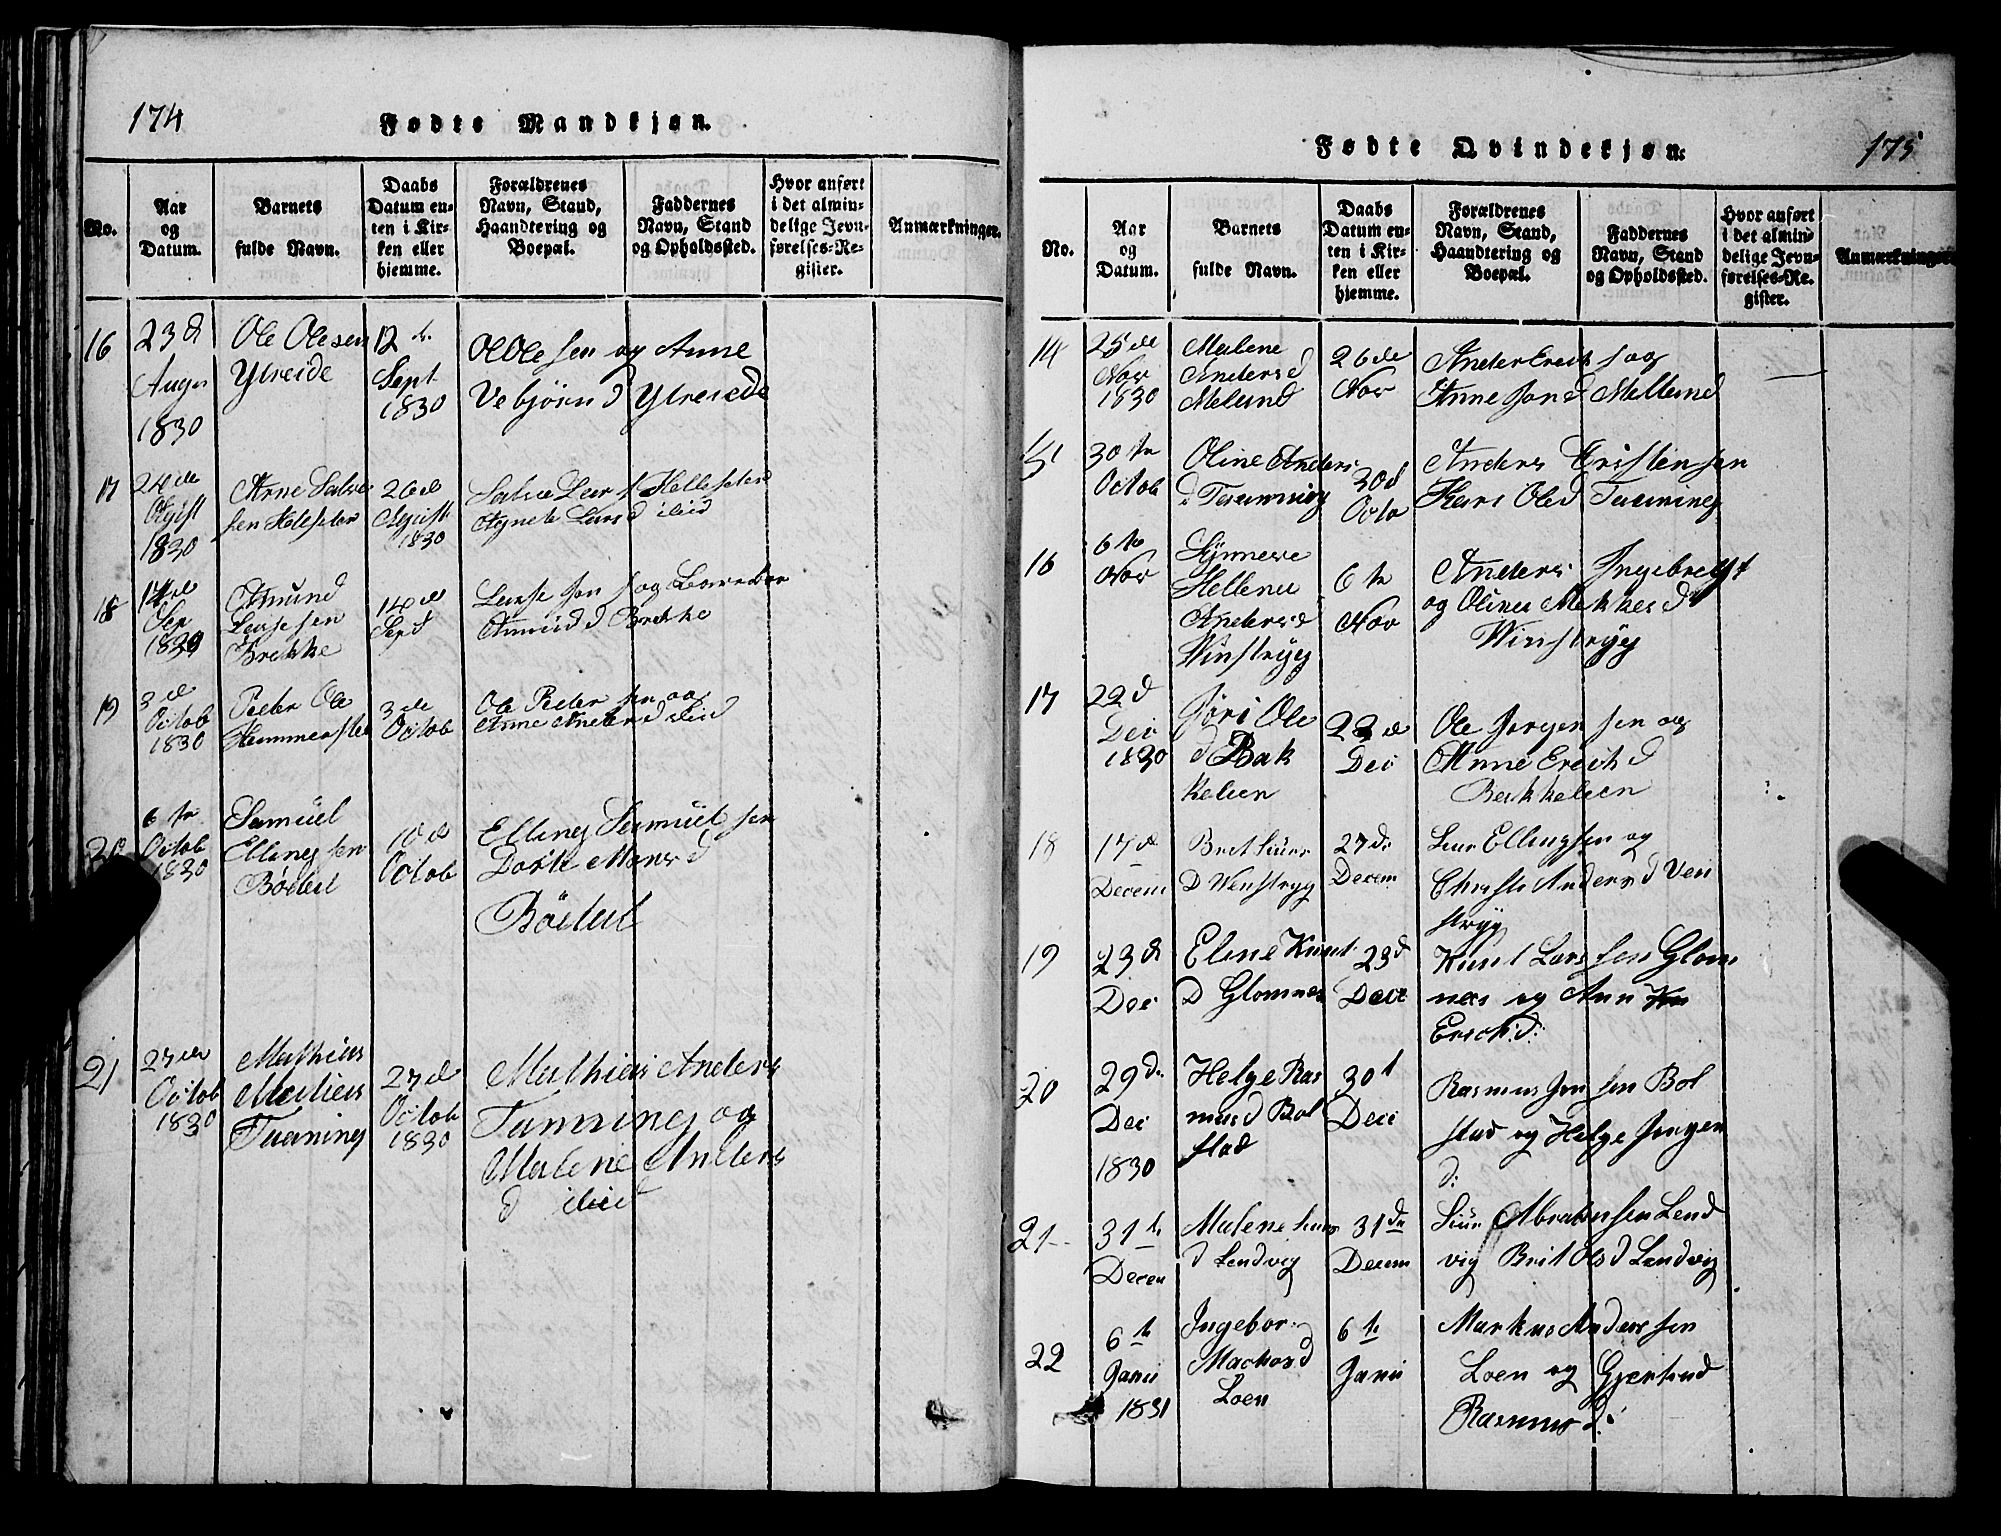 174
Fødte Mandkjøn.
No.
Aar og Datum.
Barnets fulde Navn.
Daabs Datum enten i Kirken eller hjemme.
Forældrenes Navn, Stand, Haandtering og Boepæl.
Faddernes Navn, Stand og Opholdssted.
Hvor anført i det almindelige Jevnførelses-Register.
Anmærkninger.
16
23d
Augu
1830
Ole Olesen
Ytreide
12 t.
Sept
1830
Ol Ole sen og Anne
Vebjörn d Ytreide
17
24de
1830
Arne
sen
26de
1830
18
14de
Sep
1830
Amund
Brekke
14de
Brekke
19
3de
Octob
1830
Peder Ole
3de
Octob
Ole Peder sen og
Anne Anders d
6 te
Octob
1830
Samüel
Elling sen
Bödal
10de
Octob
Elling Samüel sen
Dorte Mons d
Bödal
21
27de
Octob
1830
Mathias
Mathias
27de
Octob
1830
Mathias Anders
og
Malene Anders
d
Fødte Qvindekjøn.
175
No.
Aar og Datum.
Barnets fulde Navn.
Daabs Datum enten i Kirken eller hjemme.
Forældrenes Navn, Stand, Haandtering og Boepæl.
Faddernes Navn, Stand og Opholdssted.
Hvor anført i det almindelige Jevnførelses-Register.
Anmærkninger
14
25de
Nov
1830
Malene
Anders d
Melund
26de
Nov
Ander Erick s og
Anne Jon d Mellund
15
30 te
Octob
Oline Anders
d
30d
Octo
Anders Cristen sen
Kari Ole d
16
6 te
Nov
Synneve
Hellena
Anders d
Winstryg
6 te
Nov
Anders Ingebregt
og Olina Mekkel d
Winstryg
17
22d
Dec
1830
Jöri Ole
d Bak
kelien
22de
Dec
Ole Jorgen sen og
Anne Erich d
Bakkelien
18
17de
Decem
Brit Siurs
D Wenstryg
27de
Decem
Siur Ellingsen og
Christi Anders d Ven
stryg
19
23d
Dec
Elene Knut
D Glomnes
23d
Dece
Knut Lars sen Glom
nes og Ann
Erich d:
20
29de
Dec
1830
Helge Ras
mus d Bol
stad
30t
Dece
Rasmus Jon sen Bol
stad og Helge Jorgen
d:
21
31 t
Decem
Malene Siurs
d Lendvig
31de
Decem
Siur Abrahamsen Lend
vig Brit Ols d Lendvig
22
6 t
Janu
1831
Ingebor
Markus d
Loen
6 t
Janu
Markus Anders sen
Loen og Gjertrud
Rasmus d: